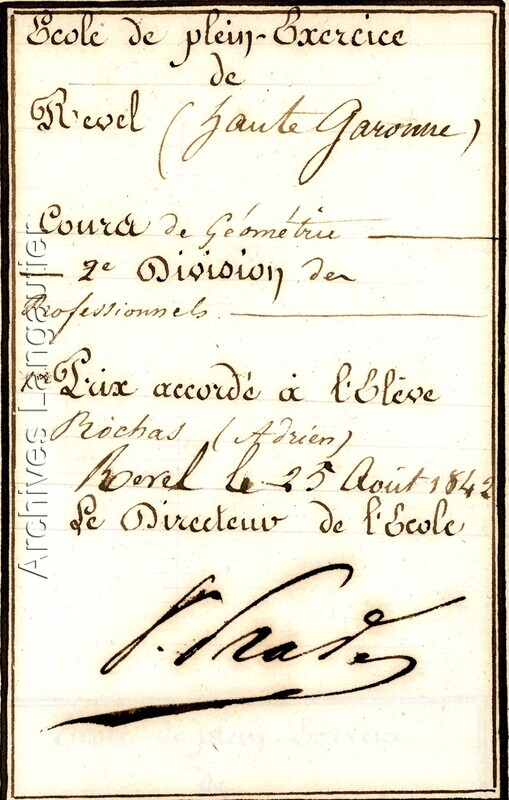 Ecole de plein-Exercice
de
Revel (haute Garonne)
Cours de Géométrie
2e Division des
Professionnels
1er Prix accordé à l'Elève
Rochas (Adrien)
Revel le 25 Août 1842
Le Directeur de l'Ecole
Archives Langautier